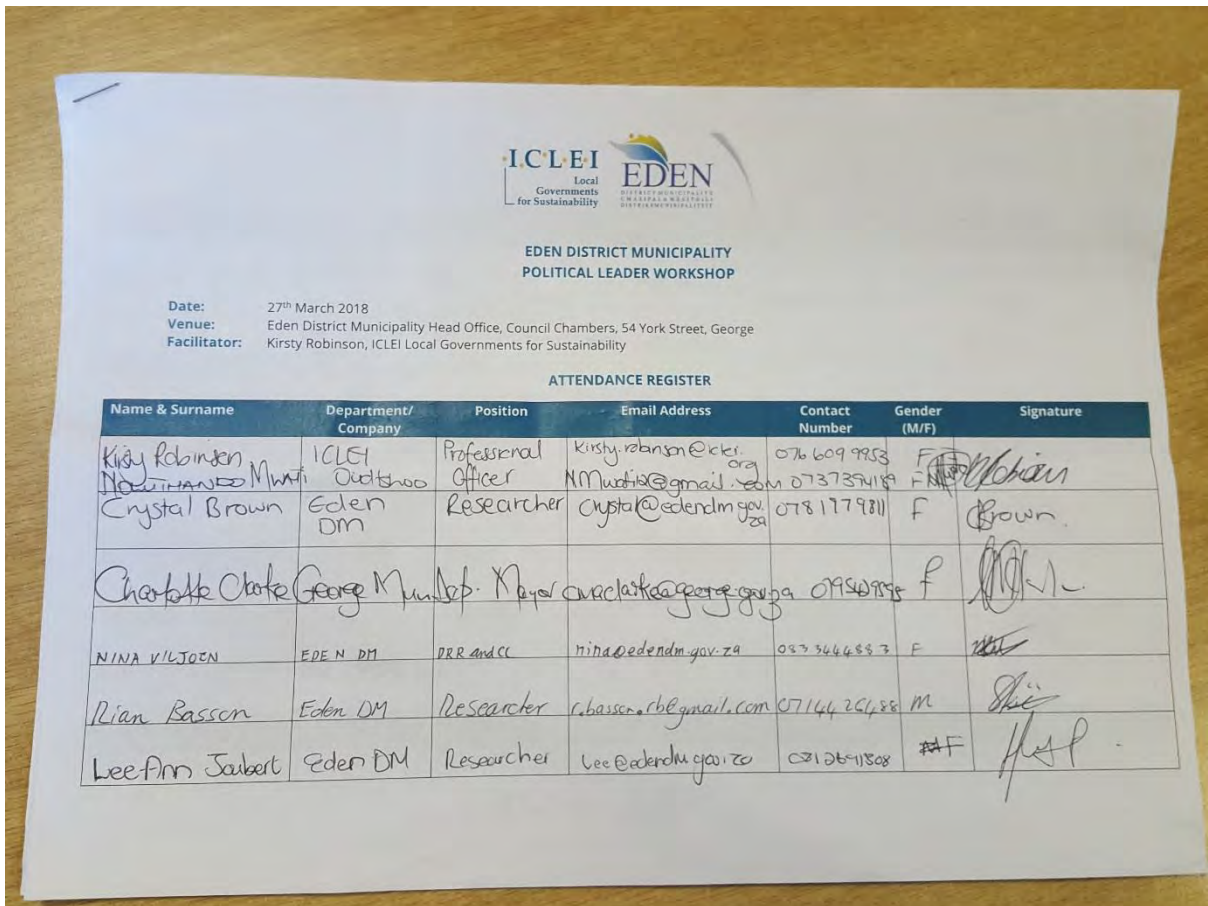 ICLEI
Local
Governments
for Sustainability
EDEN
DISTRICT MUNICIPALITY
DISTRIKSMUNISIPALITEIT
EDEN DISTRICT MUNICIPALITY
POLITICAL LEADER WORKSHOP
Date: 27th March 2018
Venue: Eden District Municipality Head Office, Council Chambers, 54 York Street, George
Facilitator: Kirsty Robinson, ICLEI Local Governments for Sustainability
ATTENDANCE REGISTER
Name & Surname Department/ Company Position Email Address Contact Number Gender (M/F) Signature
Kirsty Robinson ICLEI Professional Officer 076 609 9953 F
Crystal Brown Eden DM Researcher crystal@edendm.gov.za 0781779811 F Brown
Charlotte Clarke George Mun Dep. Mayor F
NINA VILJOEN EDEN DM DRR and CC nina@edendm.gov.za 083 3444883 F
Rian Basson Eden DM Researcher r.basson.rb@gmail.com 0714426488 M
LeeAnn Joubert Eden DM Researcher F